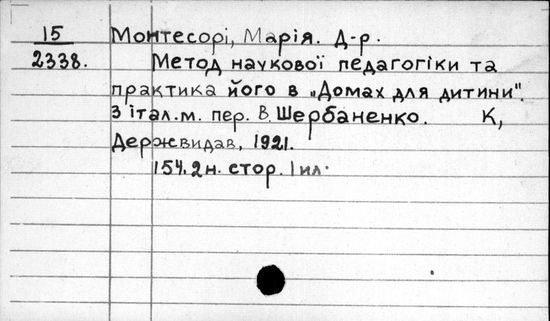 15 Монтесорі, Марія. Д-р.
2338. Метод наукової педагогіки та
практика його в „Домах для дитини".
З італ.м. пер. В. Шербаненко. К,
Держвидав, 1921.
154.2н. стор. 1 ил.